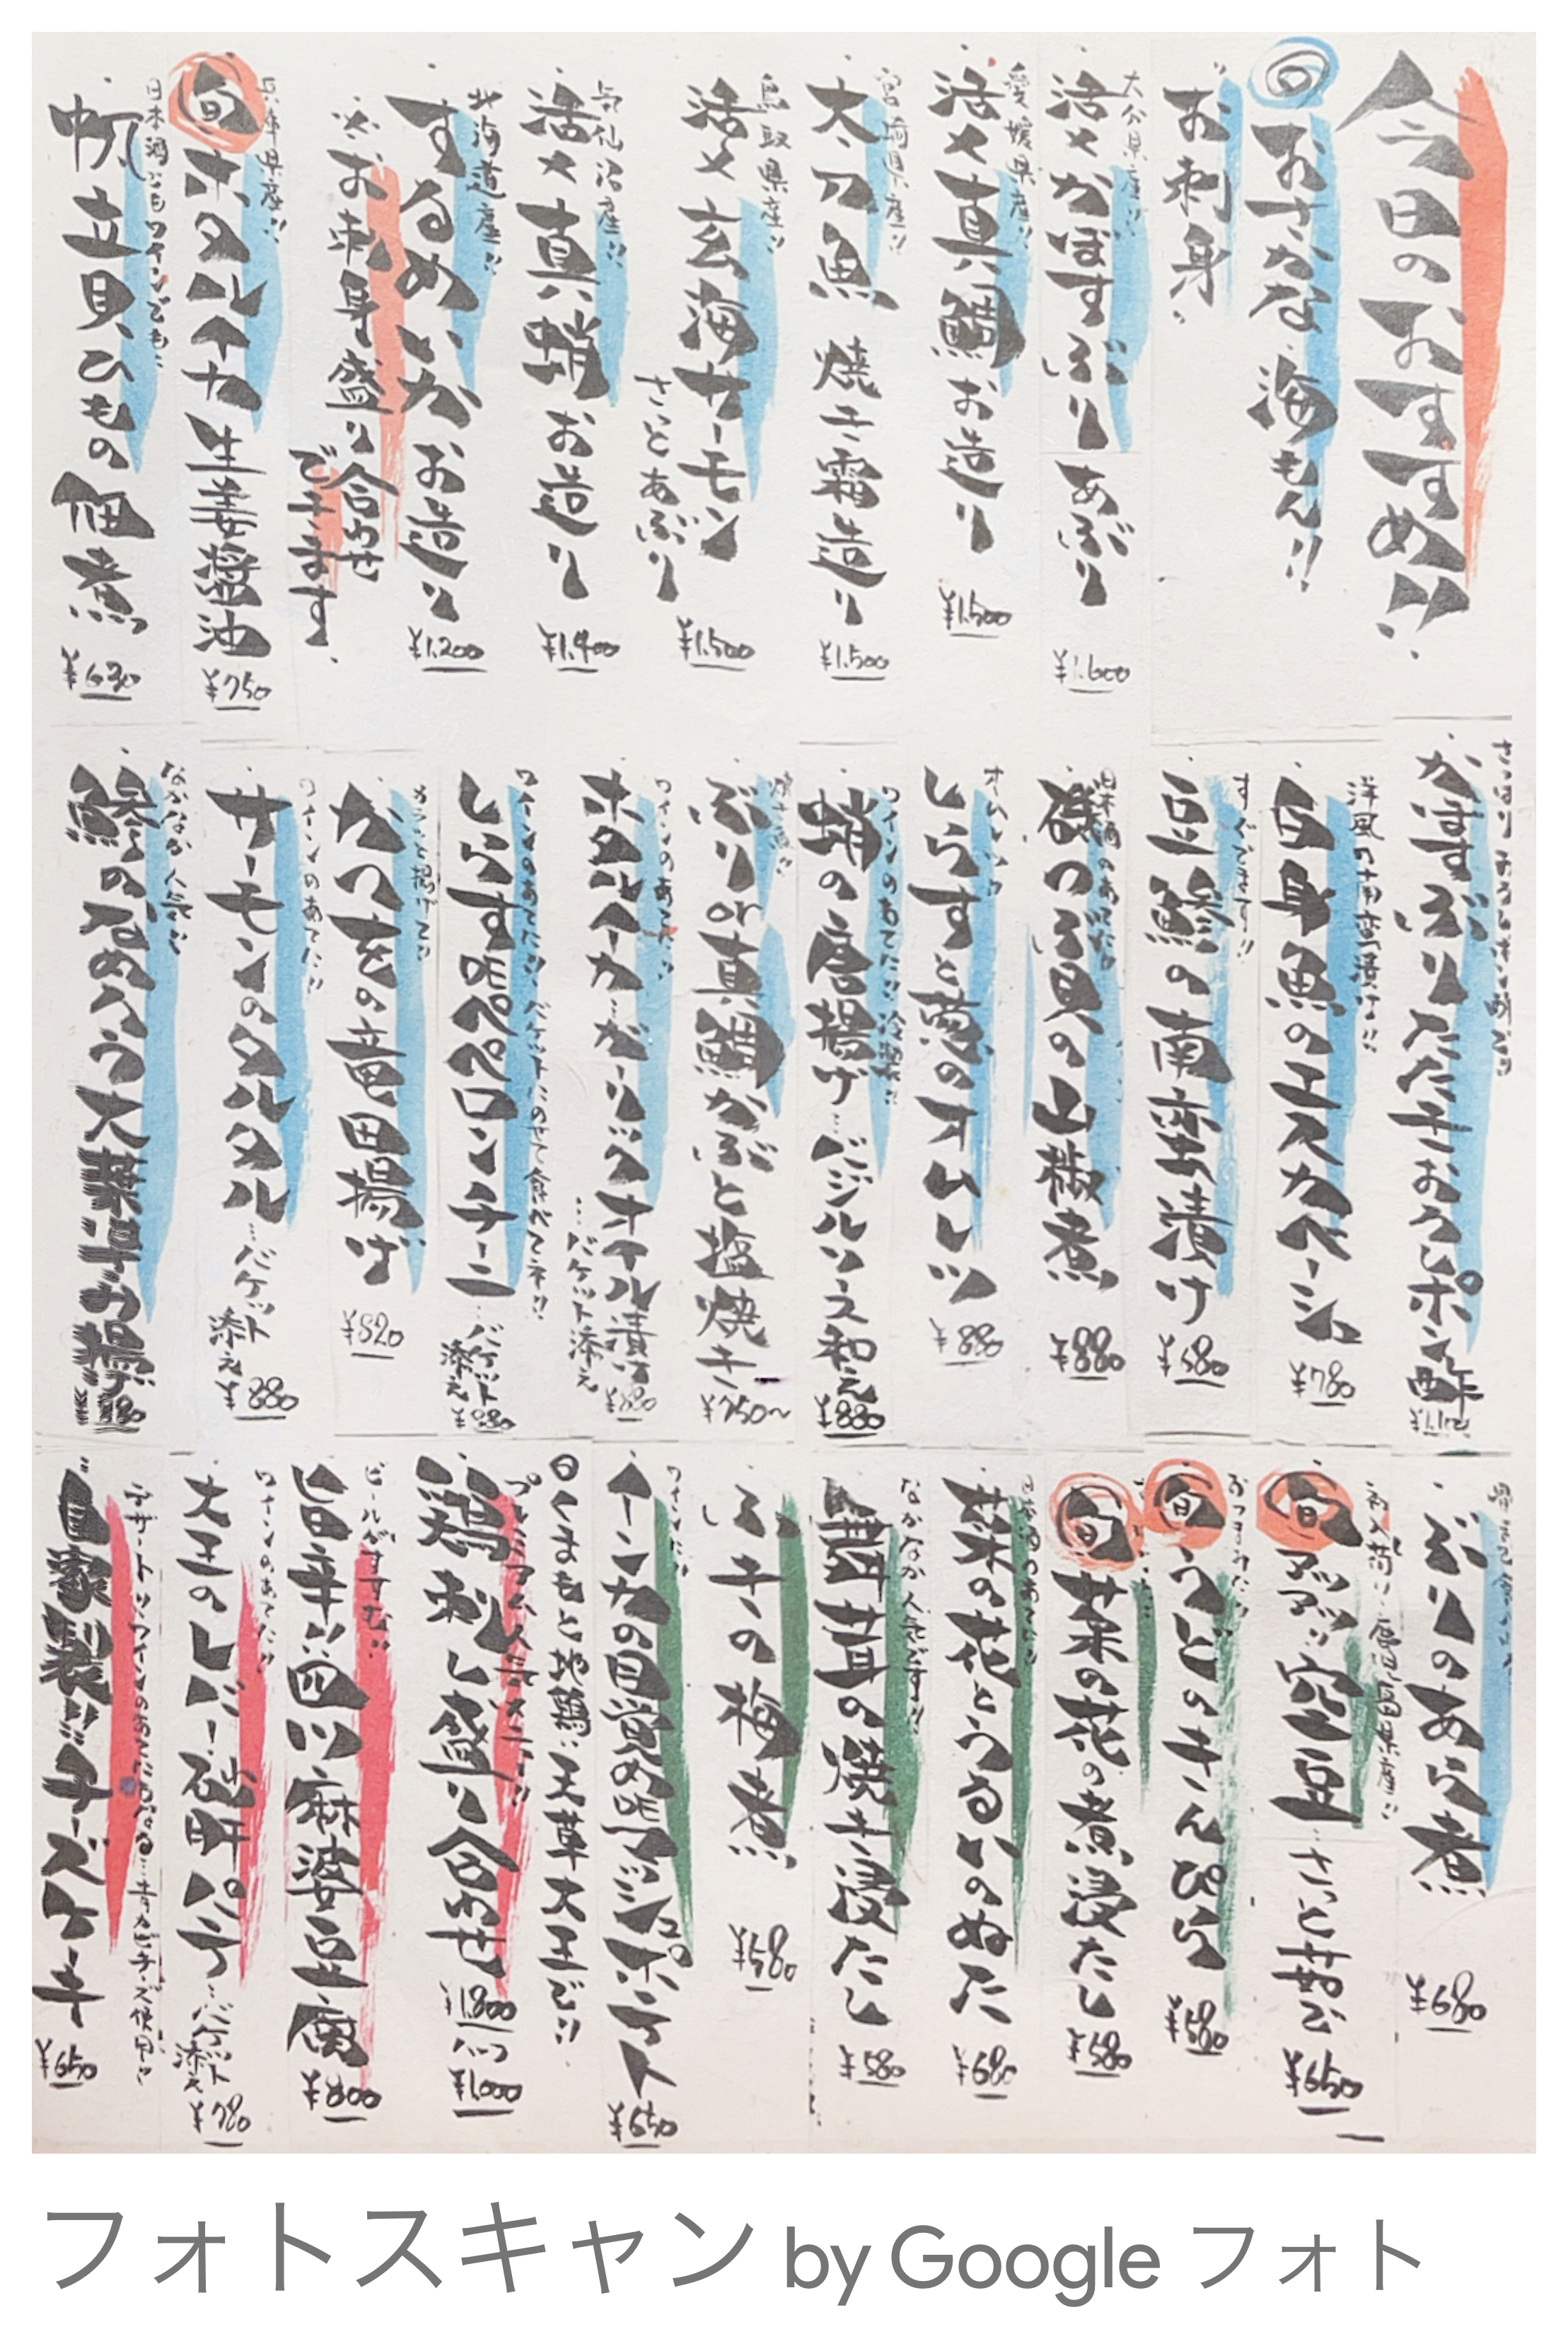 今日のおすすめ!!
旬 おさかな、海もん!!
お刺身
大分県産!!
活〆かぼすぶり あぶり ¥1.600
愛媛県産!!
活〆真鯛お造り ¥1.500
宮崎県産!!
太刀魚 焼き霜造り ¥1.500
鳥取県産!!
活〆玄海サーモン さっとあぶり ¥1.500
気仙沼産!!
活〆真蛸お造り ¥1.400
北海道産!!
するめいかお造り ¥1.200
お刺身盛り合わせ
できます
兵庫県産!!
旬 ホタルイカ生姜醤油 ¥750
日本酒にもワインでも!!
帆立貝ひもの佃煮 ¥630
さっぱりおろしポン酢で!!
かぼすぶりたたきおろしポン酢
洋風の南蛮漬け!!
白身魚のエスカベーシュ ¥780
すぐでます!!
豆鯵の南蛮漬け ¥580
日本酒のあてに!!
磯つぶ貝の山椒煮 ¥880
しらすと葱のオムレツ ¥880
ワインのあてに!!冷製!!
蛸の唐揚げ…バジルソース和え ¥880
ぶりor真鯛かぶと塩焼き ¥750〜
ワインのあてに!!
ホタルイカ…ガーリックオイル漬け …バケット添え ¥880
ワインのあてに!!バケットにのせて食べてネ!!
しらすDEペペロンチーニ …バケット添え ¥880
カラッと揚げて!!
かつをの竜田揚げ ¥820
ワインのあてに!!
サーモンのタルタル …バケット添え ¥880
なかなか人気で
鯵のなめろう大葉挟み揚げ
ぶりのあら煮 ¥680
初入荷!!鹿児島県産!!
旬 アツアツ!!空豆…さっと茹で ¥650
おつまみに!!
旬 うどのきんぴら ¥580
旬 菜の花の煮浸たし ¥580
日本酒のあてに!!
菜の花とうるいのぬた ¥680
なかなか人気です!!
舞茸の焼き浸たし ¥580
ふきの梅煮 ¥580
ワインに!!
インカの目覚めDEアンシュポテト ¥650
◎くまもと地鶏:天草大王で!!
プレミアム人気メニュー!!
鶏刺し盛り合わせ ¥1.800 ハーフ ¥1000
ビールがすすむ!!
旨辛!!四川麻婆豆腐 ¥800
ワインのあてに!!
大王のレバー砂肝パテ…バケット添え ¥780
デザートに!!ワインのあてにもなる…青カビチーズ使用!!
自家製!!チーズケーキ ¥650
フォトスキャン by Google フォト